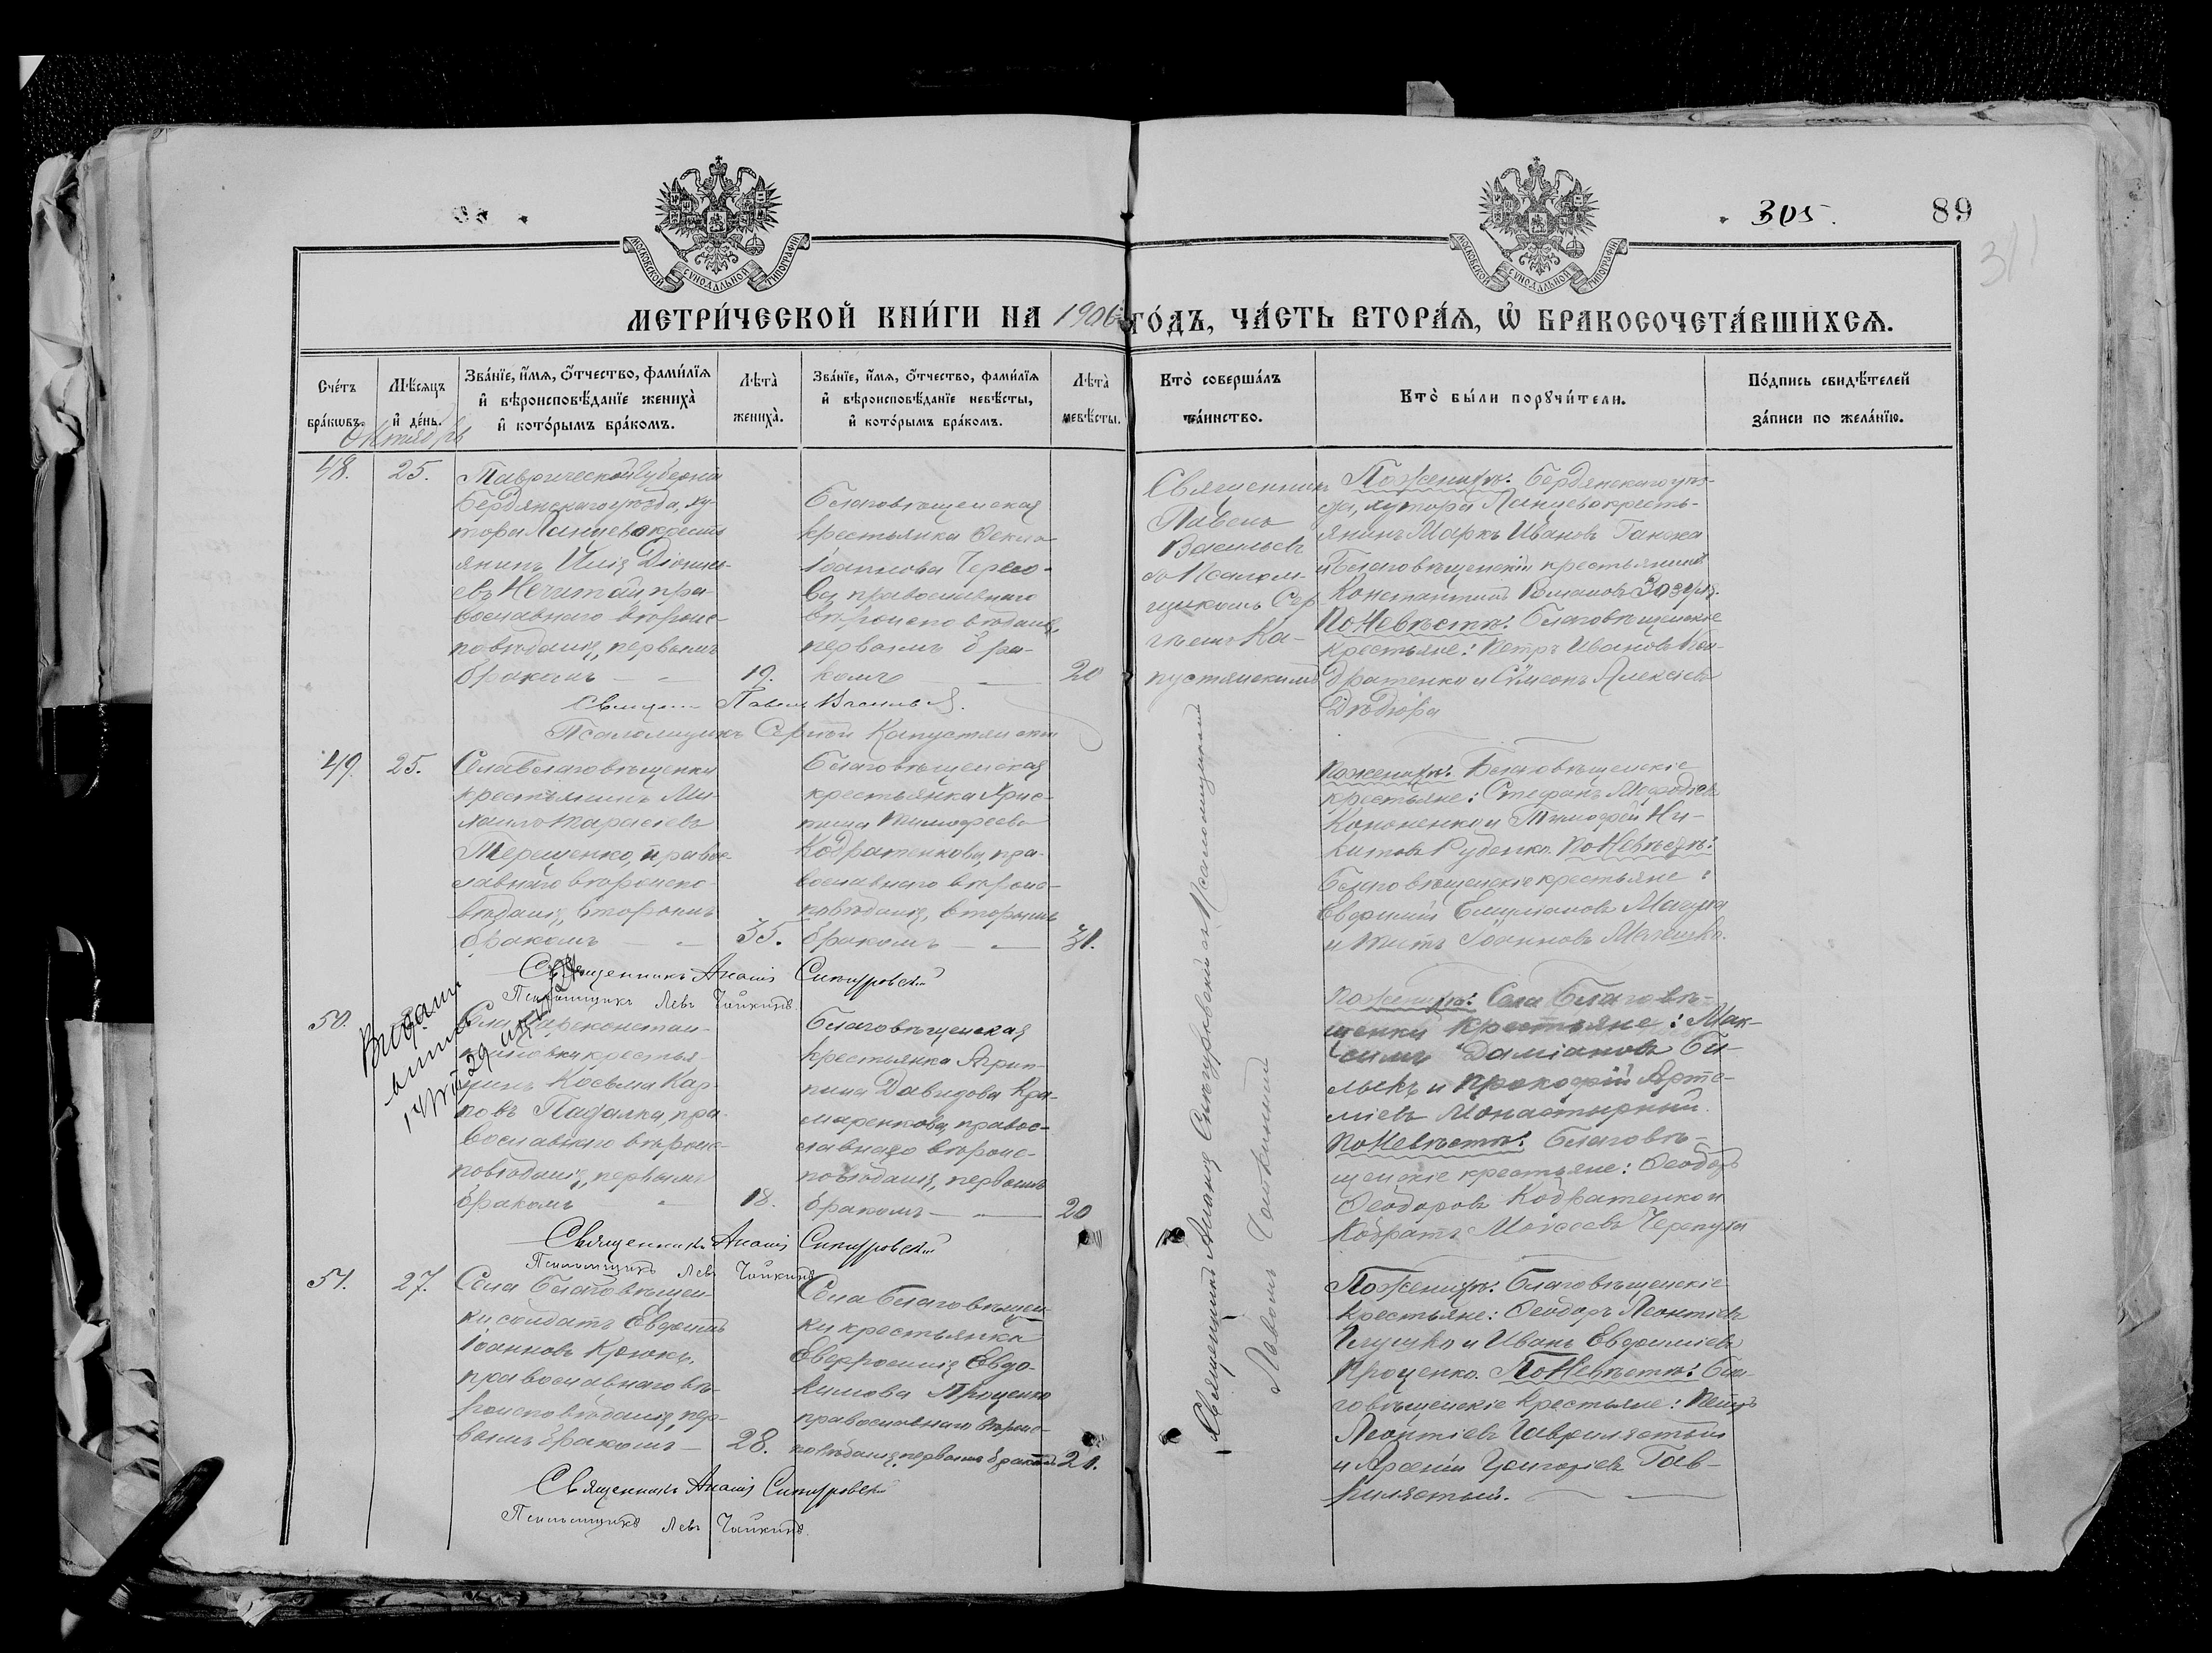 305.
89
311
МОСКОВСКОЙ СУНОДАЛЬНОЙ ТИПОГРАФІИ
МОСКОВСКОЙ СУНОДАЛЬНОЙ ТИПОГРАФІИ
МЕТРИ́ЧЕСКОЙ КНИ́ГИ НА 1906 ГО́ДЪ, ЧА́СТЬ ВТОРА́Я, Ѡ БРАКОСОЧЕТА́ВШИХСЯ.
Сче́тъ
бра́кѡвъ.
Мѣ́сяцъ
и҆ де́нь.
Октябрь
Зва́нїе, и҆́мя, ѻ҆́тчество, фами́лїя
и҆ вѣроисповѣ́данїе жениха̀
и҆ кото́рымъ бра́комъ.
Лѣта̀
жениха̀.
Зва́нїе, и҆́мя, ѻ҆́тчество, фами́лїя
и҆ вѣроисповѣ́данїе невѣ́сты,
и҆ кото́рымъ бра́комъ.
Лѣта̀
невѣ́сты.
Кто̀ соверша́лъ
та́инство.
Кто̀ бы́ли порꙋчи́тели.
По́дпись свидѣ́телей
за́писи по жела́нїю.
48.
25.
Таврической губерніи
Бердянскаго уѣзда, ху-
тора Ланцево кресть
янинъ Илія Діонись-
евъ Нечитай, пра-
вославнаго вѣроис-
повѣданія, первымъ
бракомъ
19.
Благовѣщенская
крестьянка Ѳекла
Іоаннова
православнаго
вѣроисповѣданія,
первымъ бра-
комъ
20
Священникъ
Павелъ
Васильевъ
съ Псалом-
щикомъ Сер
гѣемъ Ка-
пустянскимъ
По Женихѣ: Бердянскаго уѣз-
да, хутора Ланцево кресть-
янинъ Маркъ Ивановъ Ганжа
и Благовѣщенскій крестьянинъ
Константинъ Романовъ Зозуля.
По Невѣстѣ: Благовѣщенскіе
крестьяне: Петръ Ивановъ Кон-
дратенко и Сѷмеонъ Алексіевъ
Дѣдюра
Священ Павелъ Васильев.
Псаломщикъ Сергѣй Капустянскій
49.
25.
Села Благовѣщенки
крестьянинъ Ми-
хаилъ Тарасіевъ
Терещенко, правос-
лавнаго вѣроиспо-
вѣданія, вторымъ
бракомъ
35.
Благовѣщенская
крестьянка Хрис-
тина Тимофеева
Кодратенкова, пра-
вославнаго вѣроис-
повѣданія, вторымъ
бракомъ
31.
По женихѣ: Благовѣщенскіе
крестьяне: Стефанъ Меѳодіевъ
Кононенко и Тимофей Ни-
китовъ Руденко. По Невѣстѣ:
Благовѣщенскіе крестьяне:
Евфимій Емиліановъ
и Титъ Іоанновъ
Священникъ Ананія
Псаломщикъ Левъ Чайкинъ
50.
Села Цареконстан-
тиновки крестья-
нинъ Косьма Кар-
повъ Падалка, пра-
вославнаго вѣроис-
повѣданія, первымъ
бракомъ
18.
Благовѣщенская
крестьянка Агрип-
пина Давидова Кра-
маренкова, правос-
лавнаго вѣроис-
повѣданія, первымъ
бракомъ
20
По женихѣ: Села Благовѣ-
щенки крестьяне: Мак-
симъ Даміановъ Би-
лыкъ и Прокофій Арте-
міевъ Монастырный.
По Невѣстѣ: Благовѣ-
щенскіе крестьяне: Ѳеодоръ
Ѳеодоровъ Кодратенко и
Кодратъ Моисеевъ Черепуха
Священникъ Ананія
Псаломщикъ Левъ Чайкинъ
51.
27.
Села Благовѣщен-
ки солдатъ Евфимій
Іоанновъ Крюкъ,
православнаго вѣ-
роисповѣданія, пер-
вымъ бракомъ
28.
Села Благовѣщен
ки крестьянка
Евфросинія Евдо-
кимова Проценко
православнаго вѣроис-
повѣданія, первымъ бракомъ
21.
По Женихѣ: Благовѣщенскіе
крестьяне: Ѳеодоръ Леонтіевъ
Глушко и Иванъ Евфиміевъ
Проценко. По Невѣстѣ: Бла-
говѣщенскіе крестьяне: Петръ
Леонтіевъ Гаврилястый
и Арсеній Григоріевъ Гав-
рилястый.
Священникъ Ананія
Псаломщикъ Левъ Чайкинъ
Священникъ Ананія съ Псаломщикомъ
Львомъ Чайкинымъ